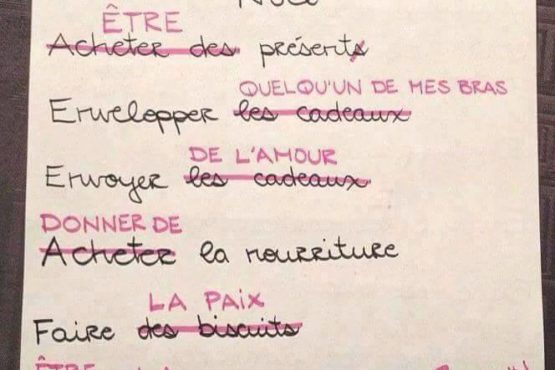 Noël
ÊTRE
Acheter des présents
QUELQU'UN DE MES BRAS
Envelopper les cadeaux
DE L'AMOUR
Envoyer les cadeaux
DONNER DE
Acheter la nourriture
LA PAIX
Faire des biscuits
ÊTRE